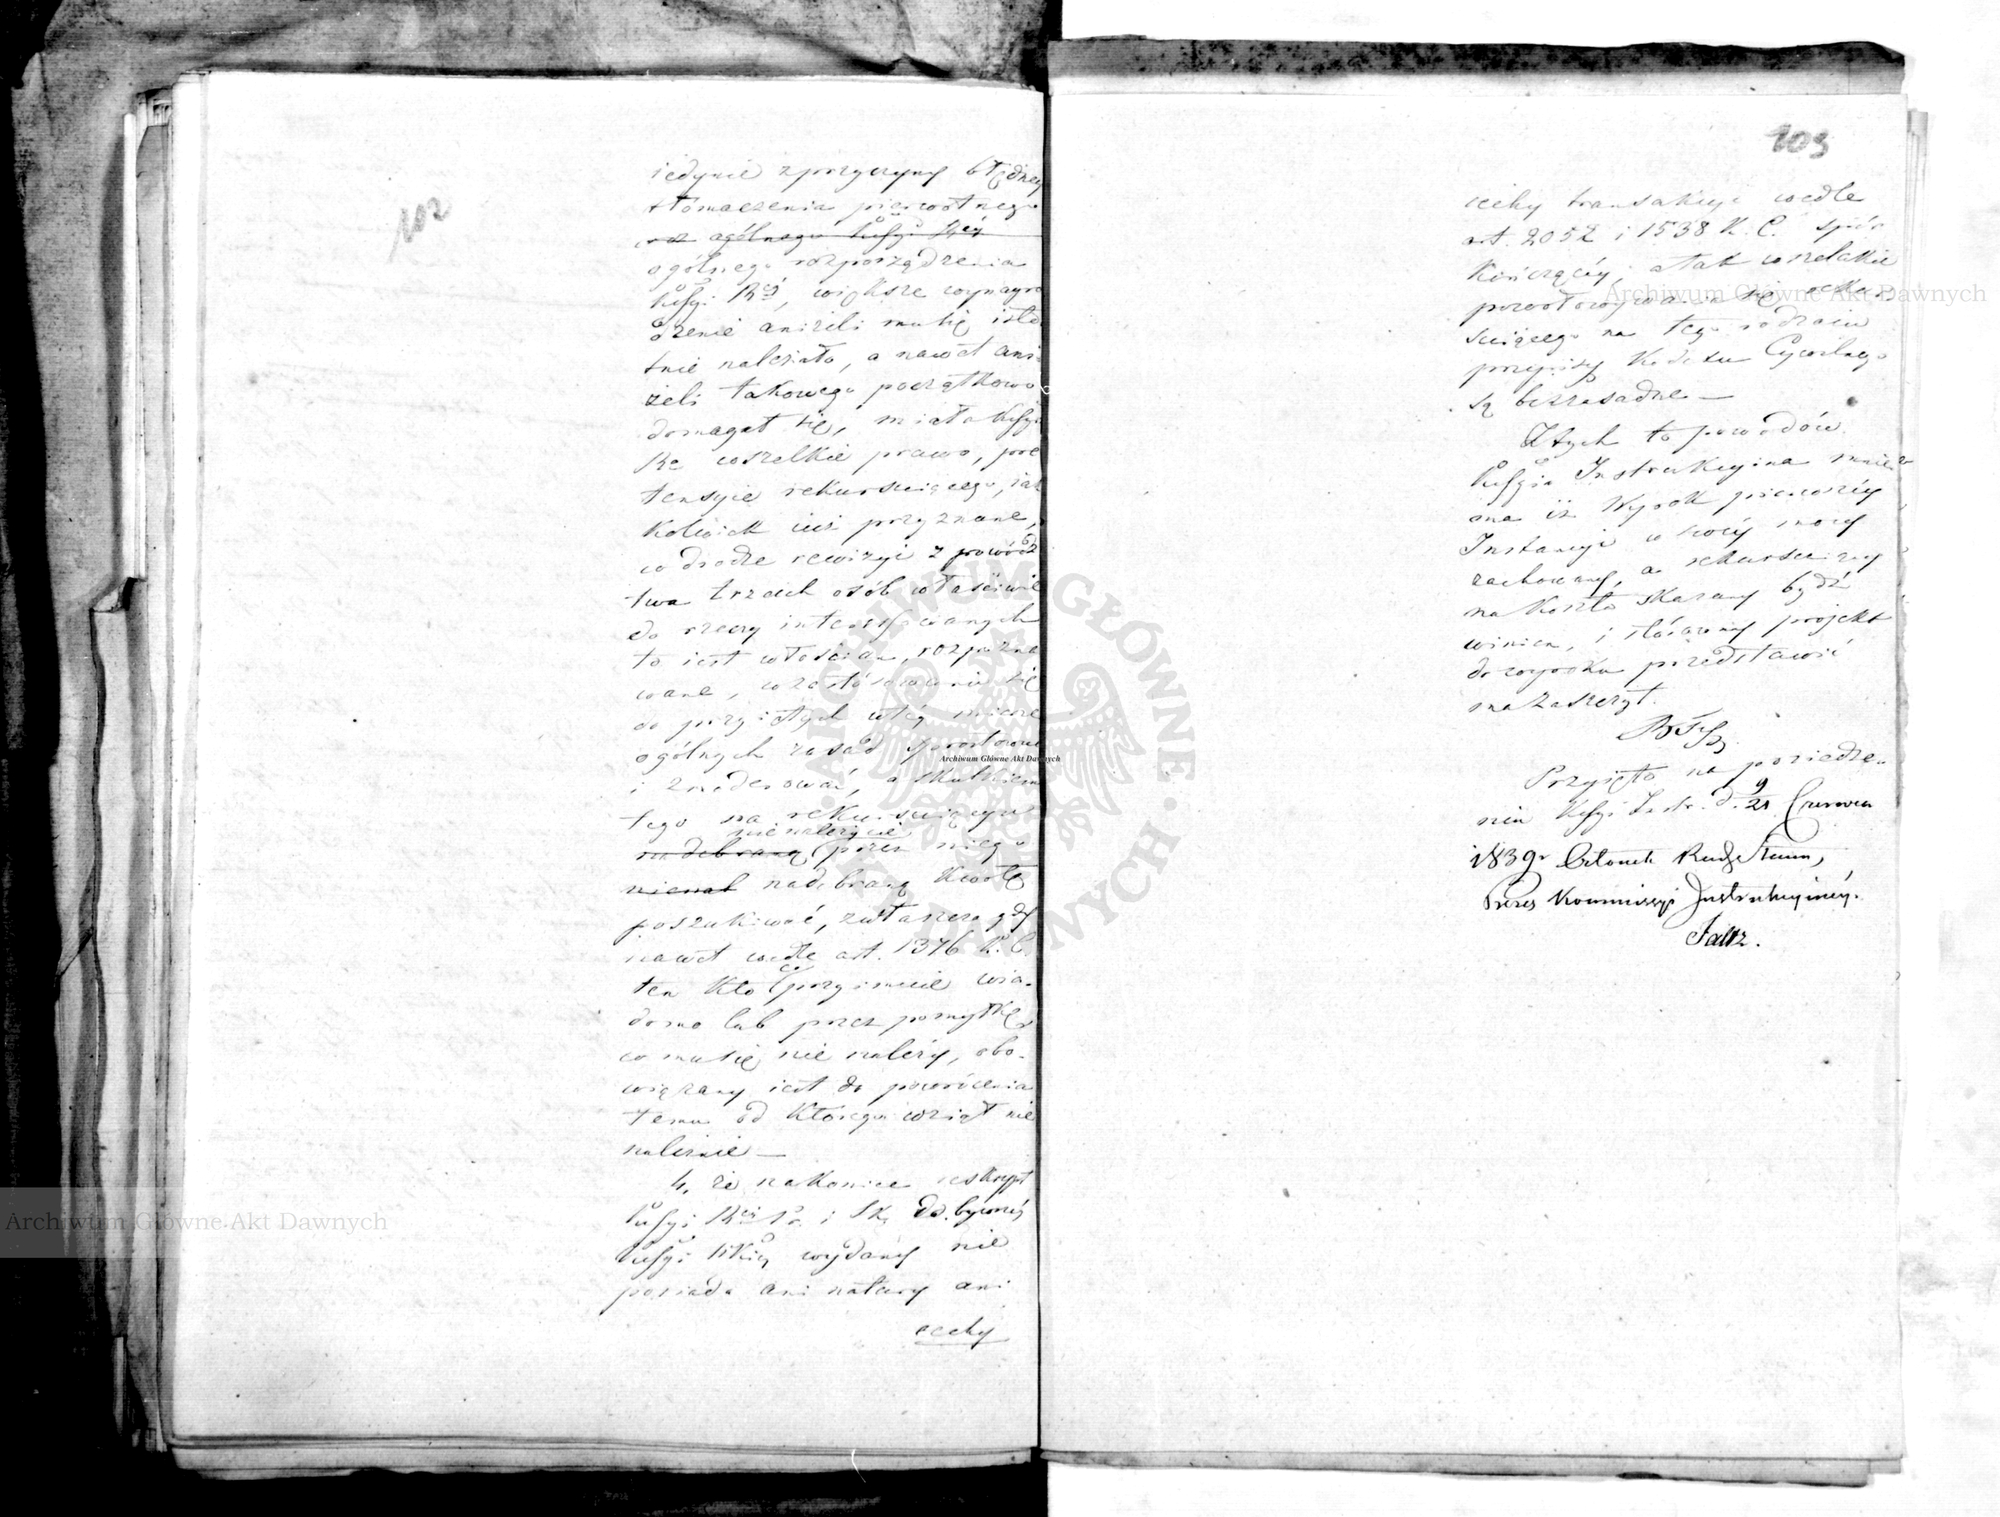 102
iedynie z przyczyny błędnego
tłómaczenia pierwotnego
ogólnego Kŭssyi Rey
ogólnego rozporządzenia
Kŭssyi Rey, większe wynagro
dzenie aniżeli mu się isto
tnie należało, a nawet ani
żeli takowego początkowo
domagał się, miała Kŭssya
Ra wszelkie prawo, pre
tensyie rekurruiącego, iak
kolwiek iuż przyznane,
w drodze rewizyi z powódz
twa trzech osób właściwie
do rzeczy interessowanych
to iest włościan, rozpozna
wane, w zastósowaniu się
do przyiętych w téy mierze
ogólnych zasad sprostować
i zmoderować, a skutkiem
tego na rekurruiącym
nienależycie
nadebraną przez niego
nienal nadebraną kwotę
poszukiwać, zwłaszcza gdy
nawet wedle art. 1376 K. C.
ten kto co przyimuie wia-
domo lub przez pomyłkę
co mu się nie należy, obo-
wiązany iest do powrócenia
temu od którego wziął nie
należnie —
4, że nakoniec reskrypt
Kŭssyi Rey P. i Sk. do byłéy
Kŭssyi Wkiéy wydany nie
posiada ani natury ani
cechy
103
cechy transakcyi wedle
art. 2052 i 1538 K. C. spór
kończącéy; a tak wszelakie
powoływania się rekur-
ruiącego na tego rodzaiu
przepisy Kodexu Cywilnego
są bezzasadne —
Z tych to powodów
Kŭssyia Instrukcyina mnie-
ma iż Wyrok pierwszéy
Instancyi w swéy mocy
zachowany, a rekurruiący
na koszta skazany bydź
winien, i stósowny projekt
do wyroku przedstawić
ma zaszczyt.
Przyięto na posiedze-
niu Kŭssyi Instr. d. 9/21 Czerwca
1839 r Członek Rady Stanu,
Prezes Kommissyi Instrukcyinéy.
Faltz.
Archiwum Główne Akt Dawnych
Archiwum Główne Akt Dawnych
Archiwum Główne Akt Dawnych
ARCHIWUM GŁÓWNE AKT DAWNYCH